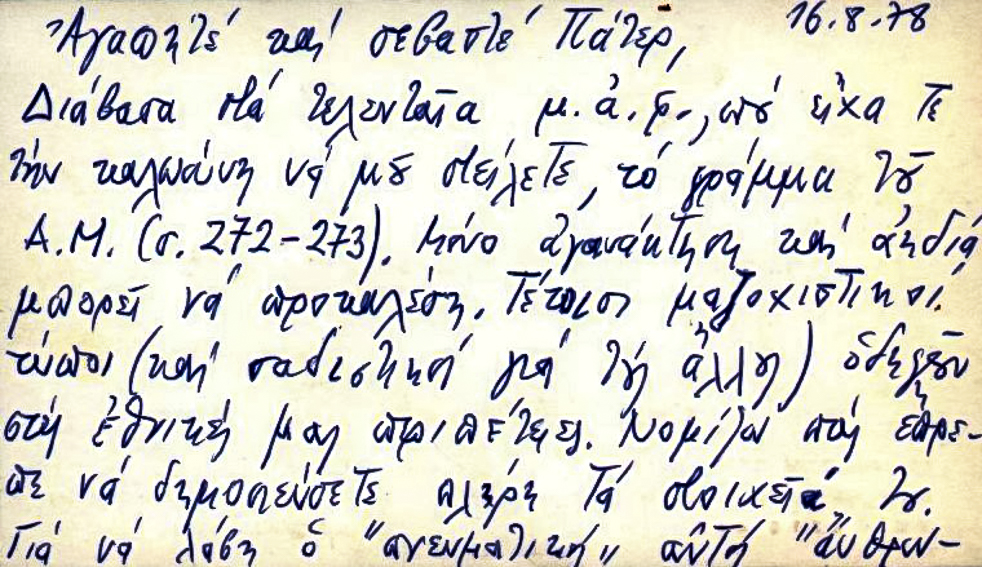 16.8.78
Ἀγαπητέ καί σεβαστέ Πάτερ,
Διάβασα στά τελευταῖα μ.ἀ.φ., πού εἴχατε
τήν καλωσύνη νά μοῦ στείλετε, τό γράμμα τοῦ
Α.Μ. (σ. 272-273). Μόνο ἀγανάκτηση καί ἀηδία
μπορεῖ νά προκαλέση. Τέτοιοι μαζοχιστικοί
τύποι (καί σαδιστικοί γιά τήν ἄλλη) ὁδηγοῦν
στίς ἐθνικές μας περιπέτειες. Νομίζω πώς ἔπρε-
πε νά δημοσιεύσετε πλήρη τά στοιχεῖά του.
Γιά νά λάβη ὁ "πνευματικός" αὐτός "ἄνθρω-